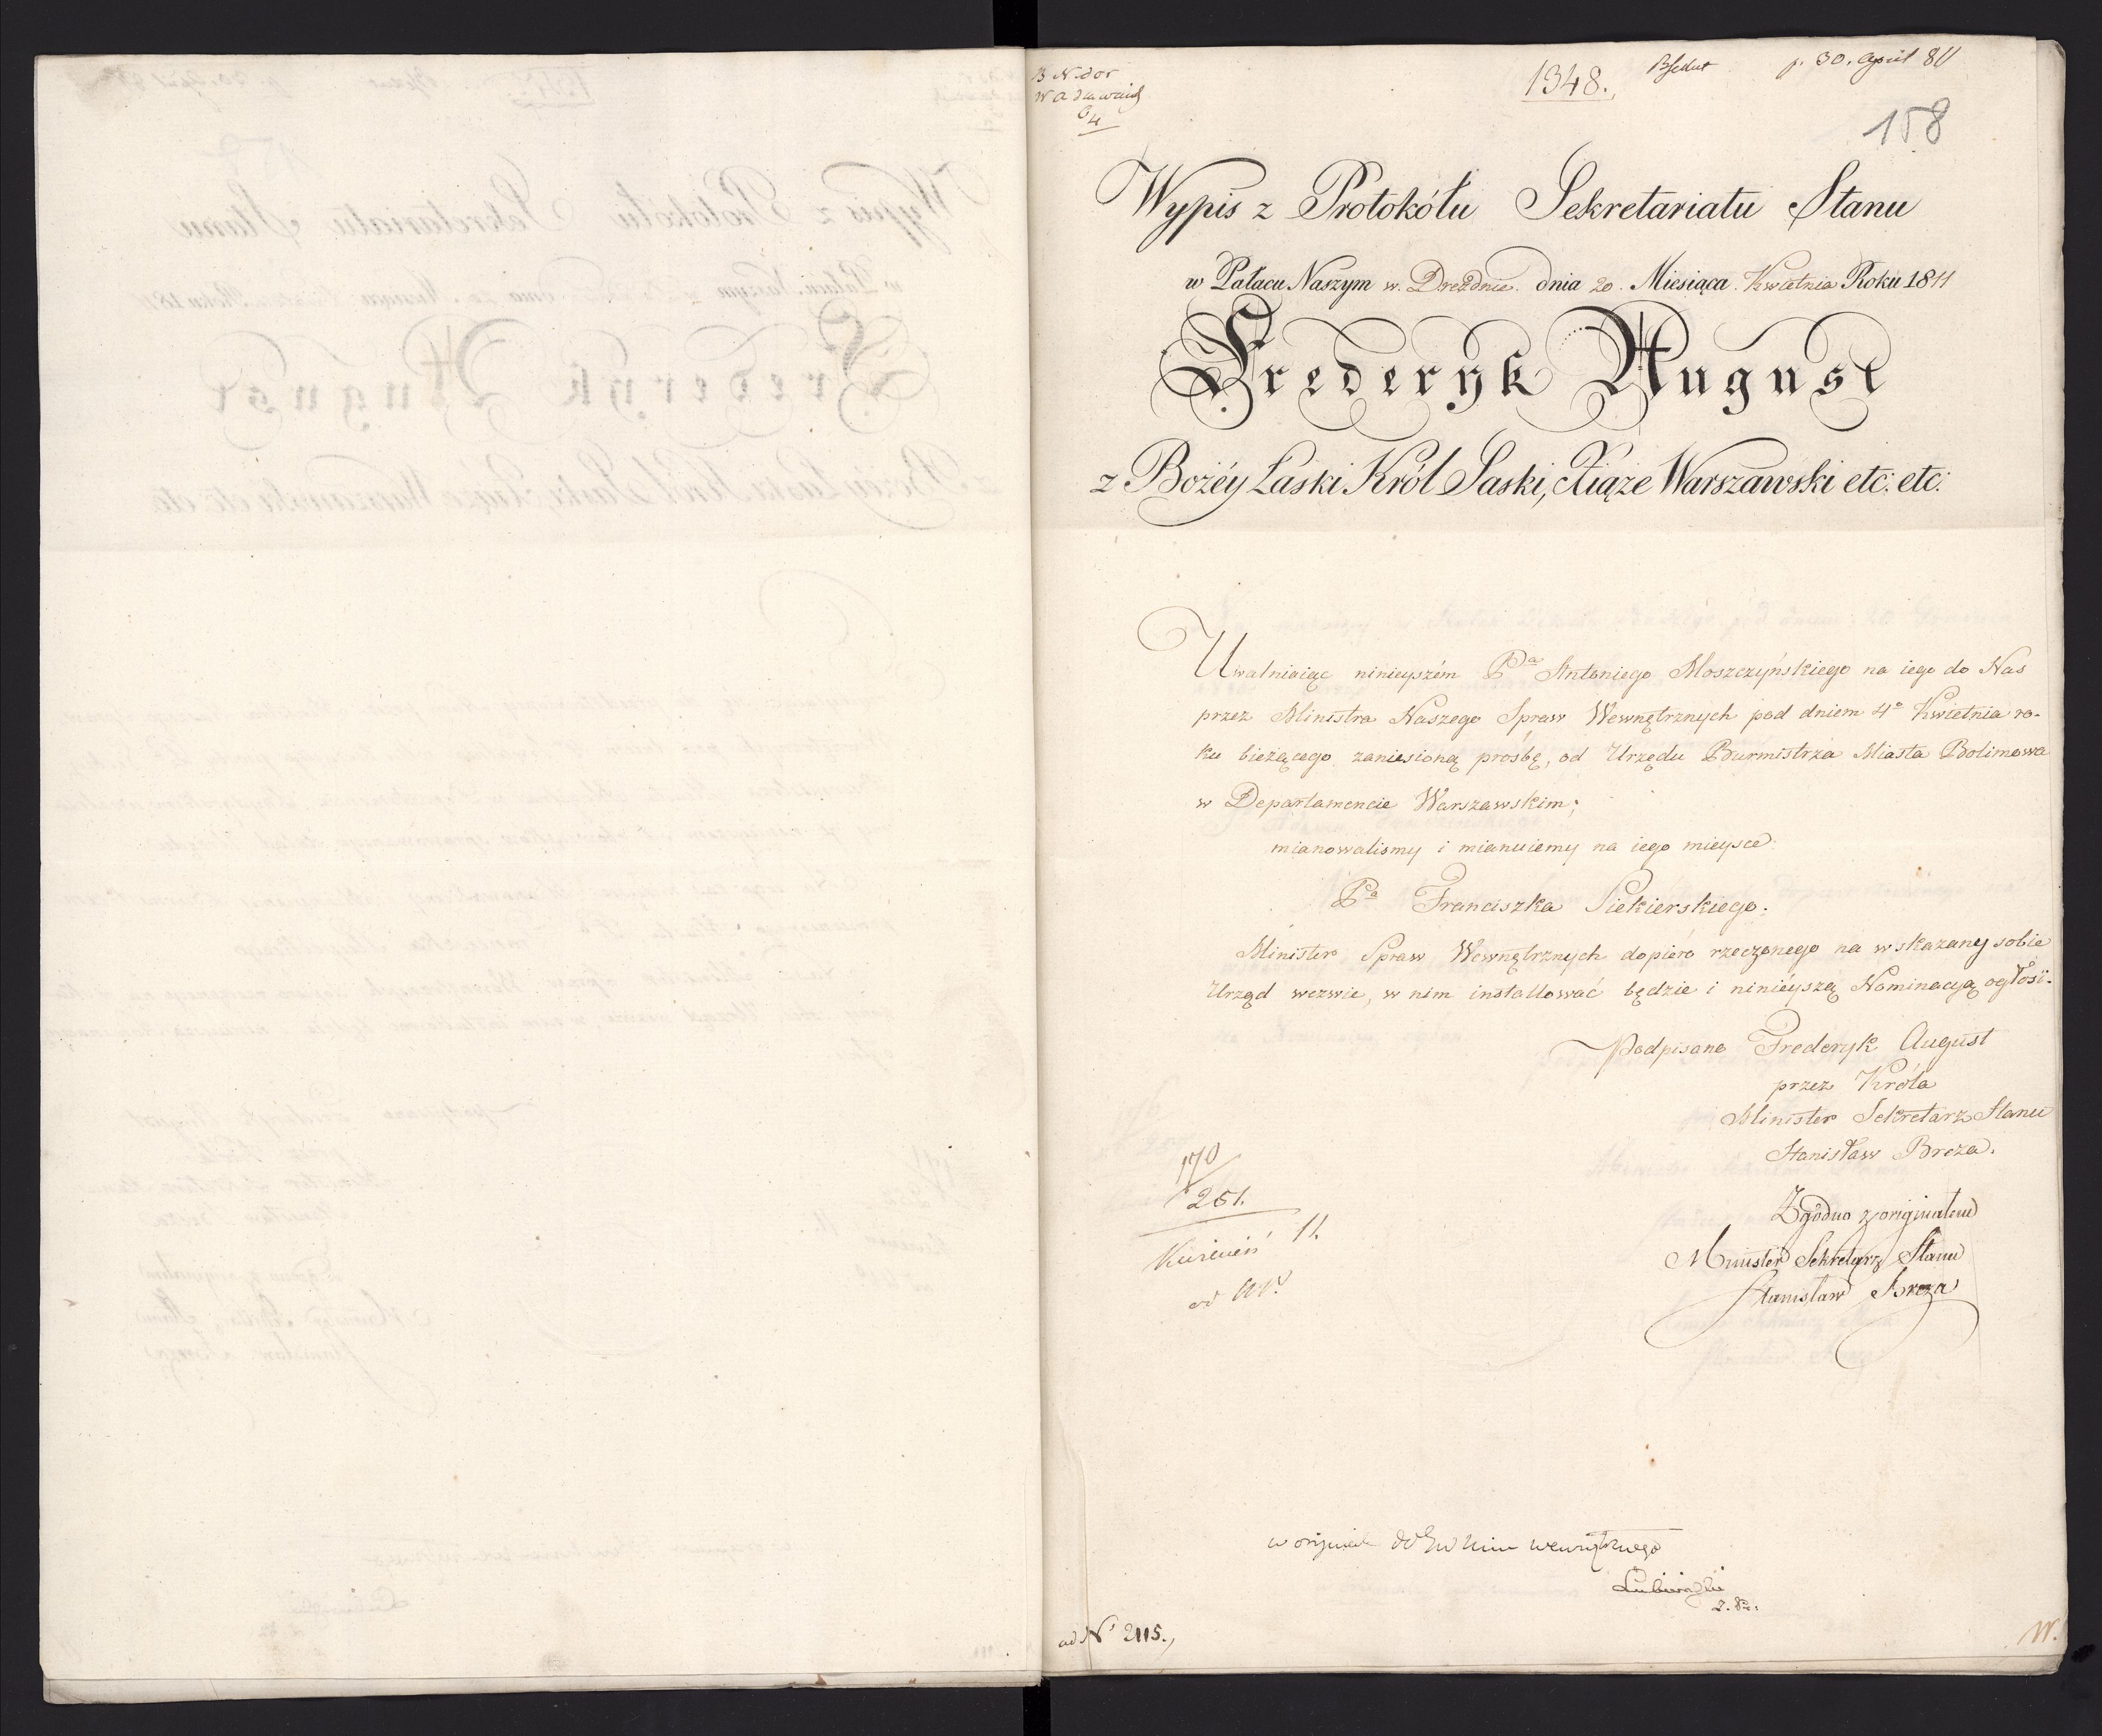 1348.
p. 30. April 811
158
Wypis z Protokółu Sekretariatu Stanu
w Pałacu Naszym w Dreźdnie dnia 20. Miesiąca Kwietnia Roku 1811
Frederyk August
z Bożéy Łaski Król Saski, Xiąże Warszawski etc: etc:
Uwalniaiąc ninieyszém Pa Antoniego Moszczyńskiego na iego do Nas
przez Ministra Naszego Spraw Wewnętrznych pod dniem 4o Kwietnia ro-
ku bieżącego zaniesioną prośbę, od Urzędu Burmistrza Miasta Bolimowa
w Departamencie Warszawskim;
mianowalismy i mianuiemy na iego mieysce
Pa Franciszka Siekierskiego.
Minister Spraw Wewnętrznych dopiero rzeczonego na wskazany sobie
Urząd wezwie, w nim installować będzie i ninieyszą Nominacyą ogłosi.
Podpisano Frederyk August
przez Króla
Minister Sekretarz Stanu
Stanisław Breza.
170
251.
Kwiecień 11.
Zgodno z originałem
Minister Sekretarz Stanu
Stanisław Breza
w wewnętrznego
ad No 2115.,
W.